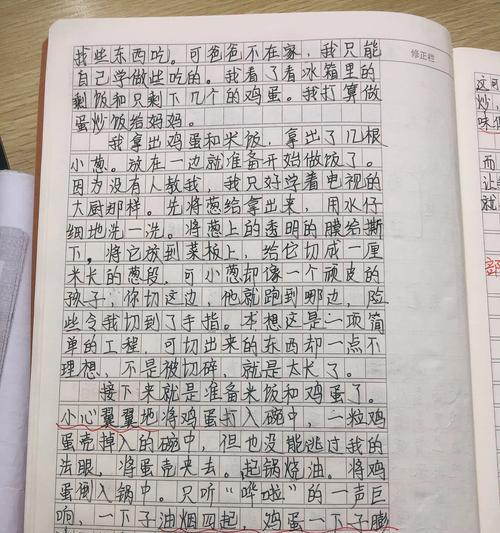 修正栏
找些东西吃。可爸爸不在家，我只能
自己学做些吃的。我看了看冰箱里的
剩饭和只剩下几个的鸡蛋。我打算做
蛋炒饭给妈妈。
我拿出鸡蛋和米饭，拿出了几根
小葱。放在一边就准备开始做饭了。
因为没有人教我，我只好学着电视的
大厨那样。先将葱给拿出来，用水仔
细地洗一洗。将葱上的透明的膜给撕
下，将它放到菜板上，给它切成一厘
米长的葱段，可小葱却像一个顽皮的
孩子，你切这边，他就跑到哪边，险
些令我切到了手指。本想这是一项简
单的工程，可切出来的东西却一点不
理想，不是被切碎，就是太长了。
接下来就是准备米饭和鸡蛋了。
小心翼翼地将鸡蛋打入碗中，一粒鸡
蛋壳掉入的碗中，但也没能逃过我的
法眼，将蛋壳夹去。起锅烧油。将鸡
蛋倒入锅中。只听“哗啦”的一声巨
响，一下子油烟四起，鸡蛋一下子膨
这可
炒，
味但
而
让的
就